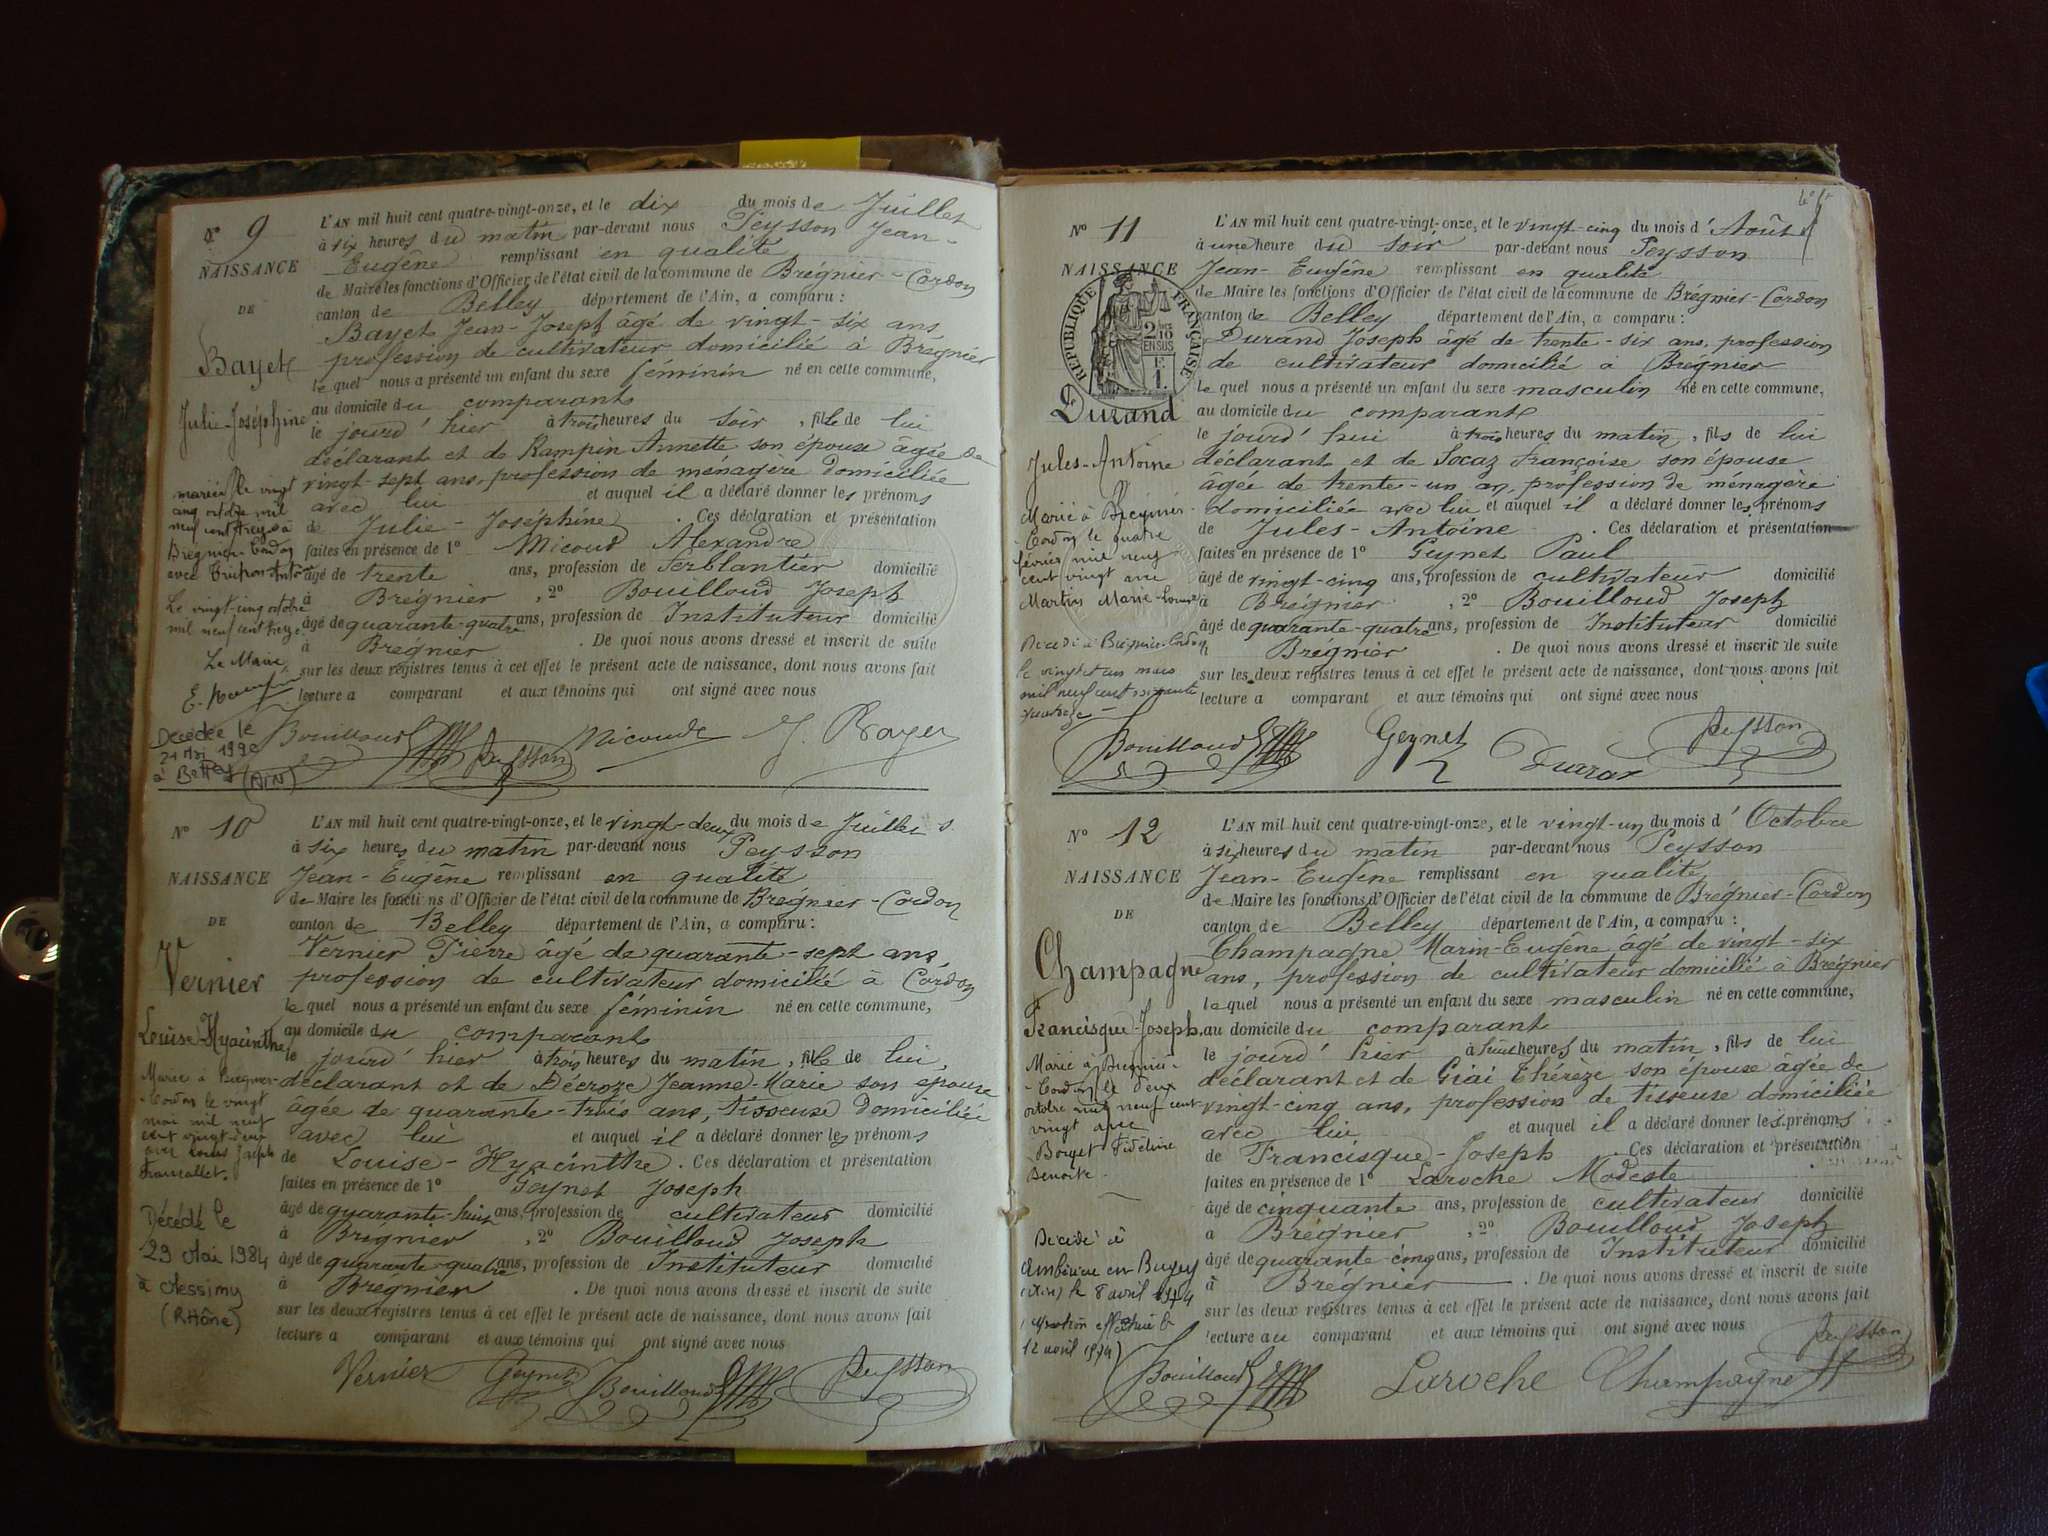 N° 9
NAISSANCE
DE
Bayet
Julie-Joséphine
mariée le vingt
cinq octobre mil
neuf cent treize à
Brégnier-Cordon
avec
Le vingt-cinq octobre
mil neuf cent treize
Le Maire
Décédée le
21 Mai 1990
à Belley (AIN)
L'AN mil huit cent quatre-vingt-onze, et le dix du mois de Juillet
à six heures du matin par-devant nous Peysson Jean-
Eugêne remplissant en qualité
de Maire les fonctions d'Officier de l'état civil de la commune de Brégnier-Cordon
canton de Belley département de l'Ain, a comparu :
Bayet Jean-Joseph âgé de vingt-six ans
profession de cultivateur domicilié à Brégnier
le quel nous a présenté un enfant du sexe féminin né en cette commune,
au domicile du comparant
le jourd'hier à trois heures du soir, fille de lui
déclarant et de Rampin Annette son épouse âgée de
vingt-sept ans, profession de ménagère domiciliée
avec lui et auquel il a déclaré donner les prénoms
de Julie-Joséphine. Ces déclaration et présentation
faites en présence de 1° Micoud Alexandre
âgé de trente ans, profession de Ferblantier domicilié
à Brégnier, 2° Bouilloud Joseph
âgé de quarante-quatre ans, profession de Instituteur domicilié
à Brégnier. De quoi nous avons dressé et inscrit de suite
sur les deux registres tenus à cet effet le présent acte de naissance, dont nous avons fait
lecture a comparant et aux témoins qui ont signé avec nous
Bouilloud Peysson Micoud J. Bayet
N° 10
NAISSANCE
DE
Vernier
Louise-Hyacinthe
Marié à Brégnier-
-Cordon le vingt
mai mil neuf
cent vingt-deux
avec Joseph
Décédé le
29 Mai 1984
à Messimy
(RHône)
L'AN mil huit cent quatre-vingt-onze, et le vingt-deux du mois de Juillet
à six heures du matin par-devant nous Peysson
Jean-Eugêne remplissant en qualité
de Maire les fonctions d'Officier de l'état civil de la commune de Brégnier-Cordon
canton de Belley département de l'Ain, a comparu :
Vernier Pierre âgé de quarante-sept ans,
profession de cultivateur domicilié à Cordon
le quel nous a présenté un enfant du sexe féminin né en cette commune,
au domicile du comparant
le jourd'hier à trois heures du matin, fille de lui,
déclarant et de Décroze Jeanne-Marie son épouse
âgée de quarante-trois ans, tisseuse domiciliée
avec lui et auquel il a déclaré donner les prénoms
de Louise-Hyacinthe. Ces déclaration et présentation
faites en présence de 1° Geynet Joseph
âgé de quarante-huit ans, profession de cultivateur domicilié
à Brégnier, 2° Bouilloud Joseph
âgé de quarante-quatre ans, profession de Instituteur domicilié
à Brégnier. De quoi nous avons dressé et inscrit de suite
sur les deux registres tenus à cet effet le présent acte de naissance, dont nous avons fait
lecture a comparant et aux témoins qui ont signé avec nous
Vernier Geynet Bouilloud Peysson
N° 11
NAISSANCE
RÉPUBLIQUE FRANÇAISE
2/10 EN SUS
F. 1.
Durand
Jules-Antoine
Marié à Brégnier-
Cordon le quatre
février mil neuf
cent vingt avec
Martin Marie-Louise
Décédé à Brégnier-Cordon
le vingt et un mars
mil neuf cent soixante
quatorze
L'AN mil huit cent quatre-vingt-onze, et le vingt-cinq du mois d'Août
à une heure du soir par-devant nous Peysson
Jean-Eugêne remplissant en qualité
de Maire les fonctions d'Officier de l'état civil de la commune de Brégnier-Cordon
canton de Belley département de l'Ain, a comparu :
Durand Joseph âgé de trente-six ans, profession
de cultivateur domicilié à Brégnier
le quel nous a présenté un enfant du sexe masculin né en cette commune,
au domicile du comparant
le jourd'hui à trois heures du matin, fils de lui
déclarant et de Socaz Françoise son épouse
âgée de trente-un an, profession de ménagère
domiciliée avec lui et auquel il a déclaré donner les prénoms
de Jules-Antoine. Ces déclaration et présentation
faites en présence de 1° Geynet Paul
âgé de vingt-cinq ans, profession de cultivateur domicilié
à Brégnier, 2° Bouilloud Joseph
âgé de quarante-quatre ans, profession de Instituteur domicilié
à Brégnier. De quoi nous avons dressé et inscrit de suite
sur les deux registres tenus à cet effet le présent acte de naissance, dont nous avons fait
lecture a comparant et aux témoins qui ont signé avec nous
Bouilloud Geynet Durand Peysson
N° 12
NAISSANCE
DE
Champagne
Francisque-Joseph
Marié à Brégnier-
-Cordon le deux
octobre mil neuf cent
vingt avec
Benoite
Décédé à
Ambérieu en Bugey
(Ain) le 8 avril 1974
12 avril 1974)
L'AN mil huit cent quatre-vingt-onze, et le vingt-un du mois d'Octobre
à six heures du matin par-devant nous Peysson
Jean-Eugêne remplissant en qualité
de Maire les fonctions d'Officier de l'état civil de la commune de Brégnier-Cordon
canton de Belley département de l'Ain, a comparu :
Champagne Marin-Eugêne âgé de vingt-six
ans, profession de cultivateur domicilié à Brégnier
le quel nous a présenté un enfant du sexe masculin né en cette commune,
au domicile du comparant
le jourd'hier à heures du matin, fils de lui
déclarant et de Giai Thérèze son épouse âgée de
vingt-cinq ans, profession de tisseuse domiciliée
avec lui et auquel il a déclaré donner les prénoms
de Francisque-Joseph. Ces déclaration et présentation
faites en présence de 1° Laroche Modeste
âgé de cinquante ans, profession de cultivateur domicilié
à Brégnier, 2° Bouilloud Joseph
âgé de quarante cinq ans, profession de Instituteur domicilié
à Brégnier. De quoi nous avons dressé et inscrit de suite
sur les deux registres tenus à cet effet le présent acte de naissance, dont nous avons fait
lecture au comparant et aux témoins qui ont signé avec nous
Bouilloud Laroche Champagne Peysson